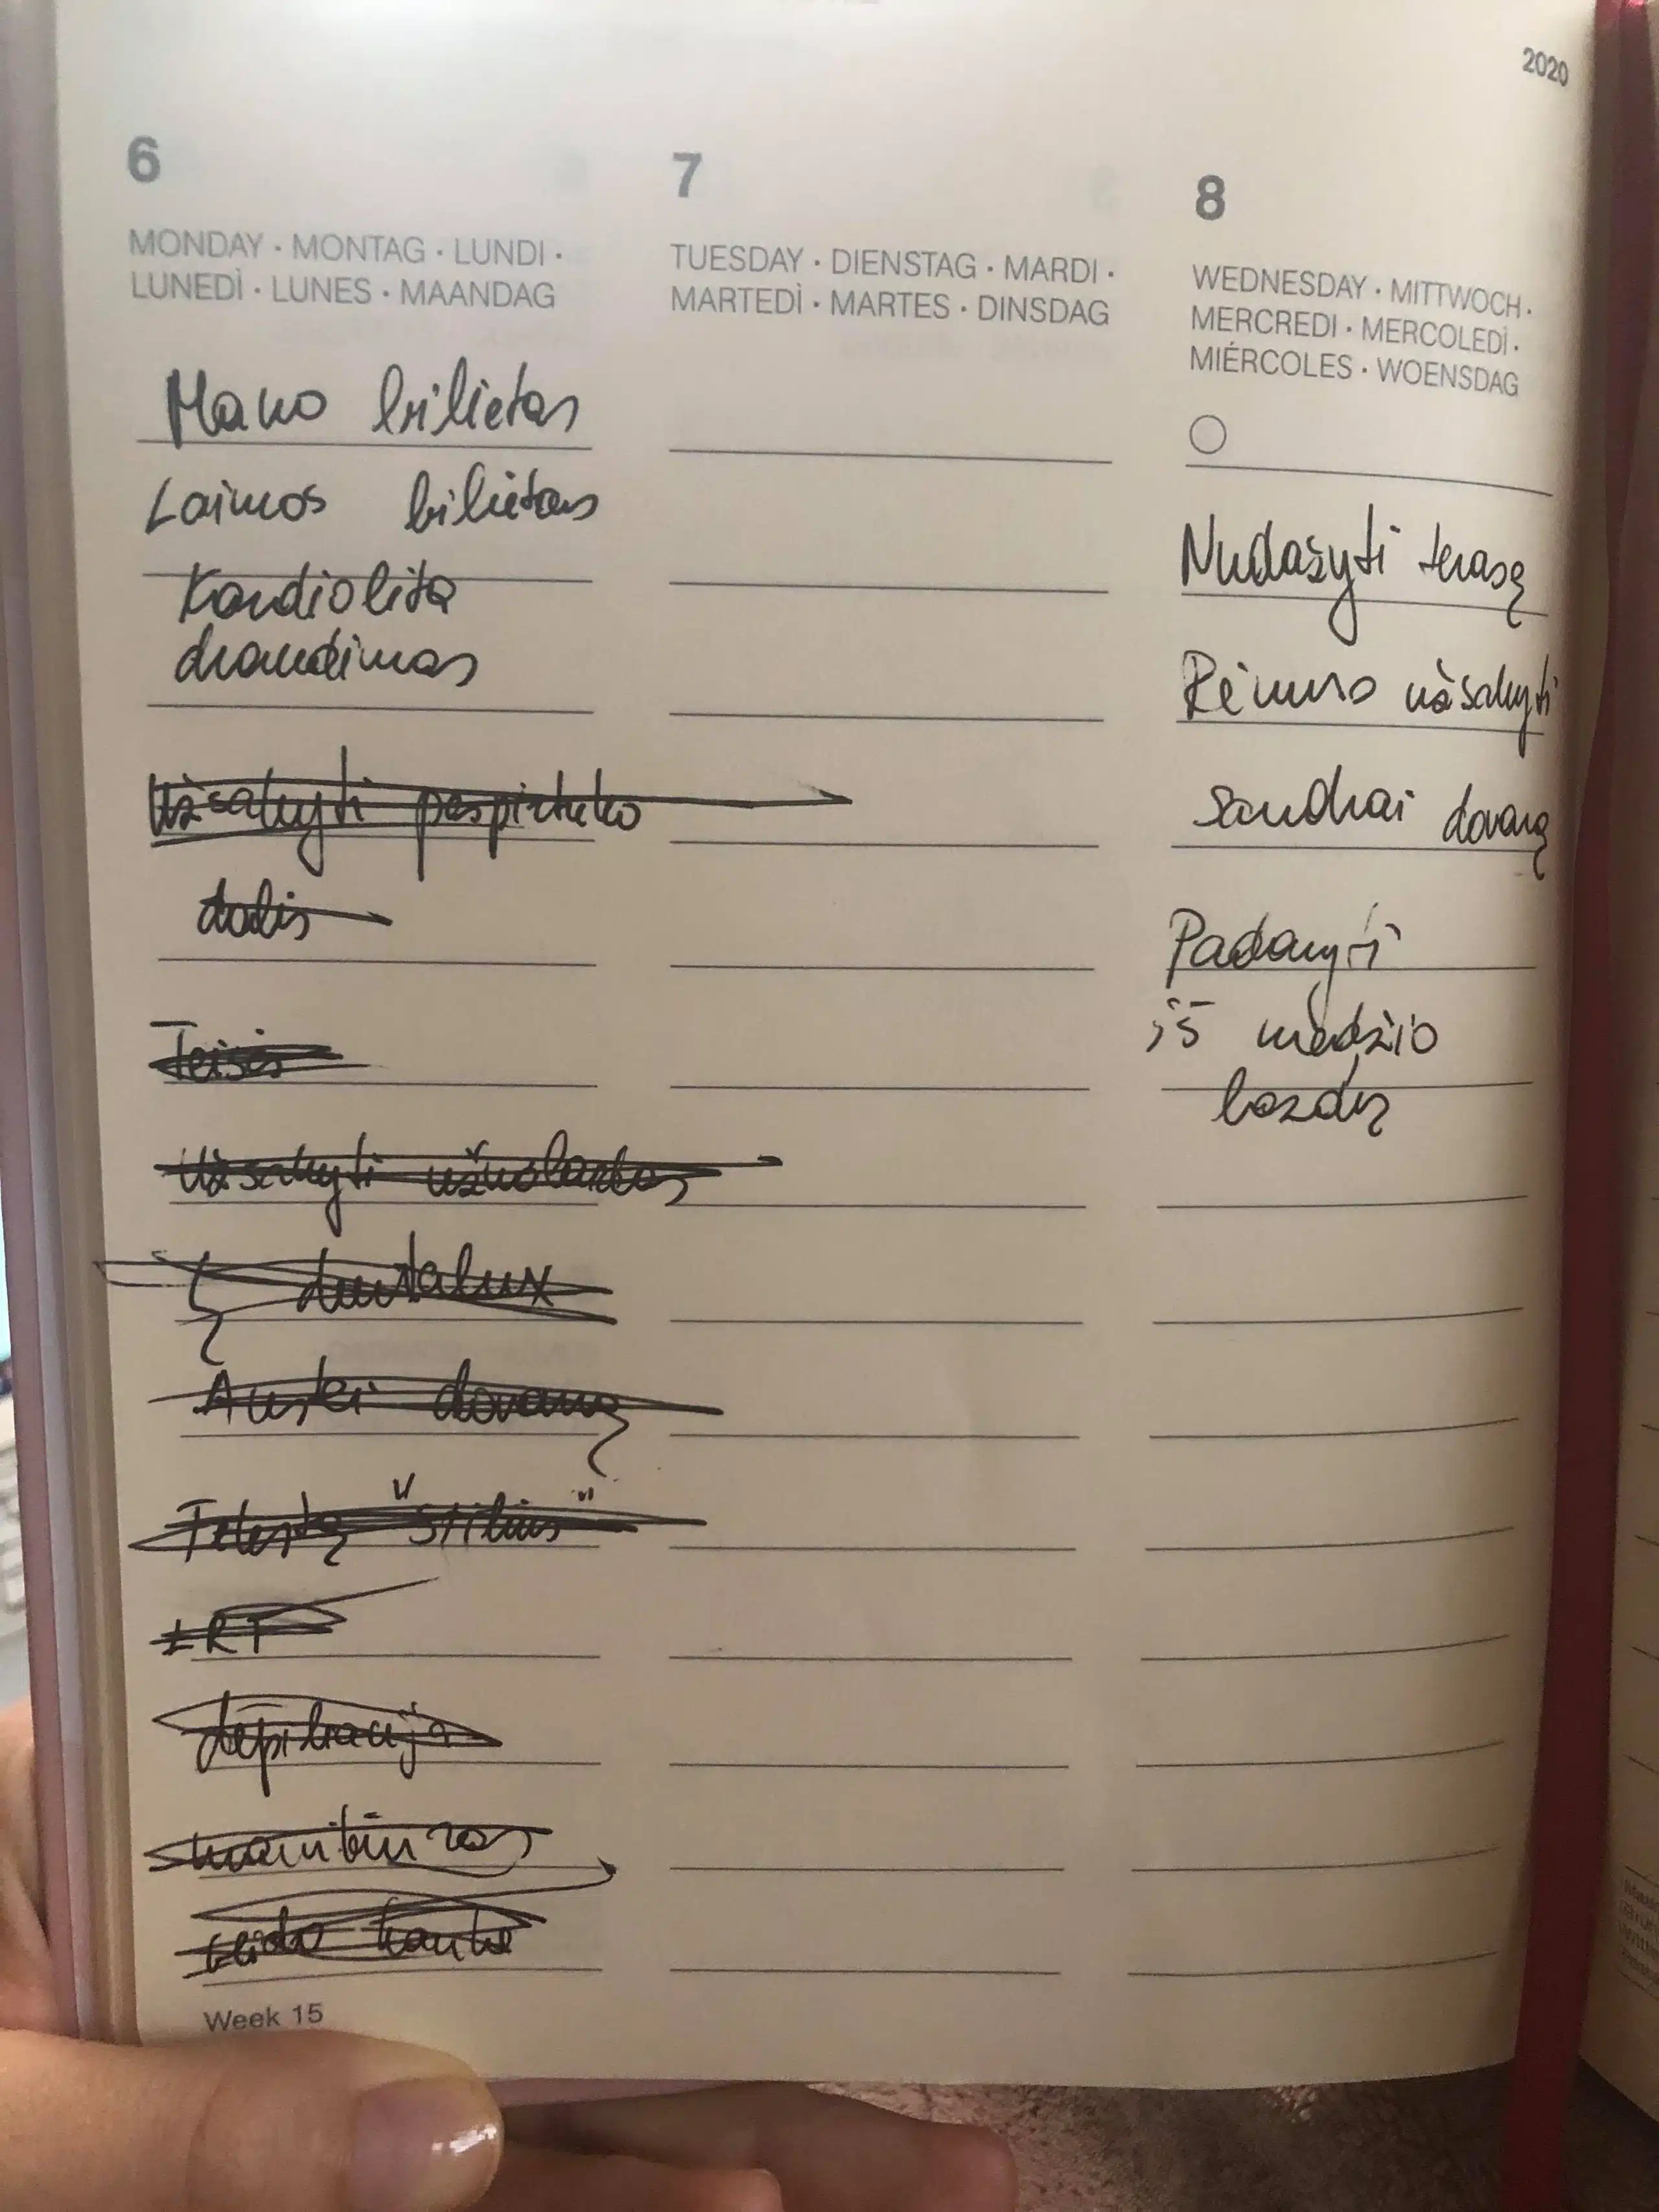 2020
6
MONDAY · MONTAG · LUNDI ·
LUNEDÌ · LUNES · MAANDAG
Mano bilietas
Laimos bilietas
Kardiolita
draudimas
Užsakyti paspirtuko
dalis
Teisės
Užsakyti
dentalux
Austei dovaną
"Stilius"
LRT
depiliacija
Week 15
7
TUESDAY · DIENSTAG · MARDI ·
MARTEDÌ · MARTES · DINSDAG
8
WEDNESDAY · MITTWOCH ·
MERCREDI · MERCOLEDÌ ·
MIÉRCOLES · WOENSDAG
Nudažyti terasą
Rėmus užsakyti
Sandrai dovaną
Padaryti
iš medžio